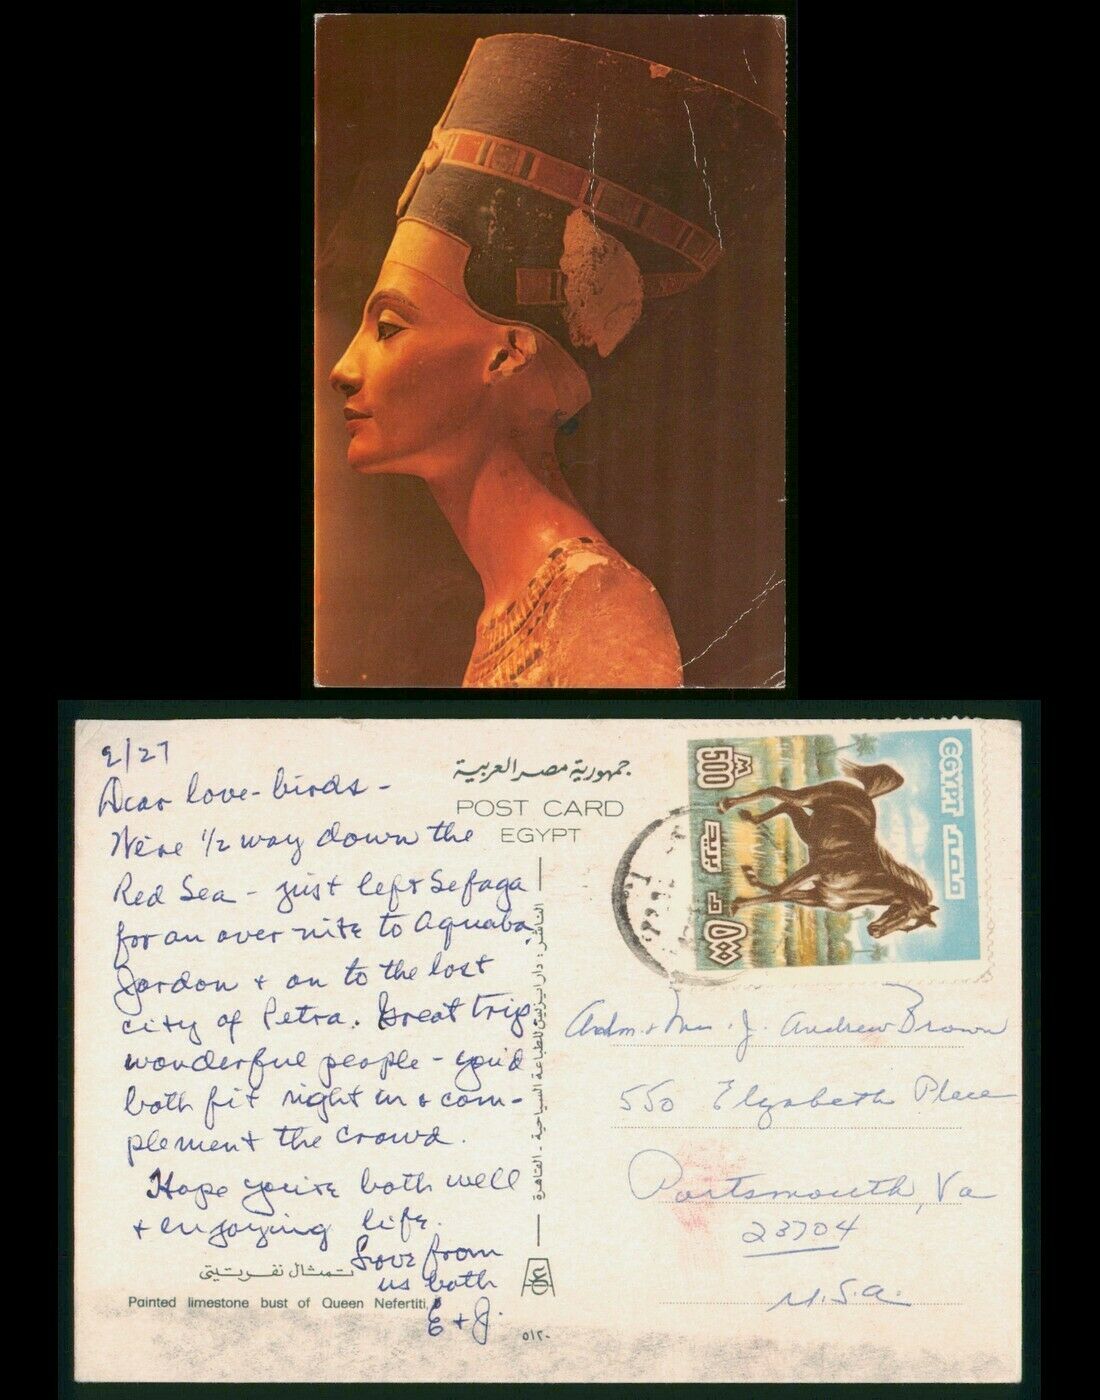 9/27
Dear love-birds -
We're 1/2 way down the
Red Sea - just left Sefaga
for an over nite to Aquaba,
Jordon + on to the lost
city of Petra. Great trip,
wonderful people - you'd
both fit right in & com-
plement the crowd.
Hope you're both well
+ enjoying life.
Love from
us both
E + J.
تمثال نفرتيتى
Painted limestone bust of Queen Nefertiti,
جمهورية مصر العربية
POST CARD
EGYPT
القاهرة - الناشر : دار ايزيس للطباعة السياحية
٥١٢٠
EGYPT مصر
500
٥٠٠
Adm. + Mrs. J. Andrew Brown
550 Elizabeth Place
Portsmouth, Va
23704
U.S.A.